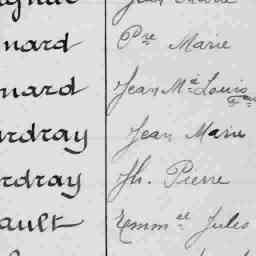 nard Pre Marie
nard Jean Mie Louis
rdray Jean Marie
rdray Jh. Pierre
ault Emmel Jules